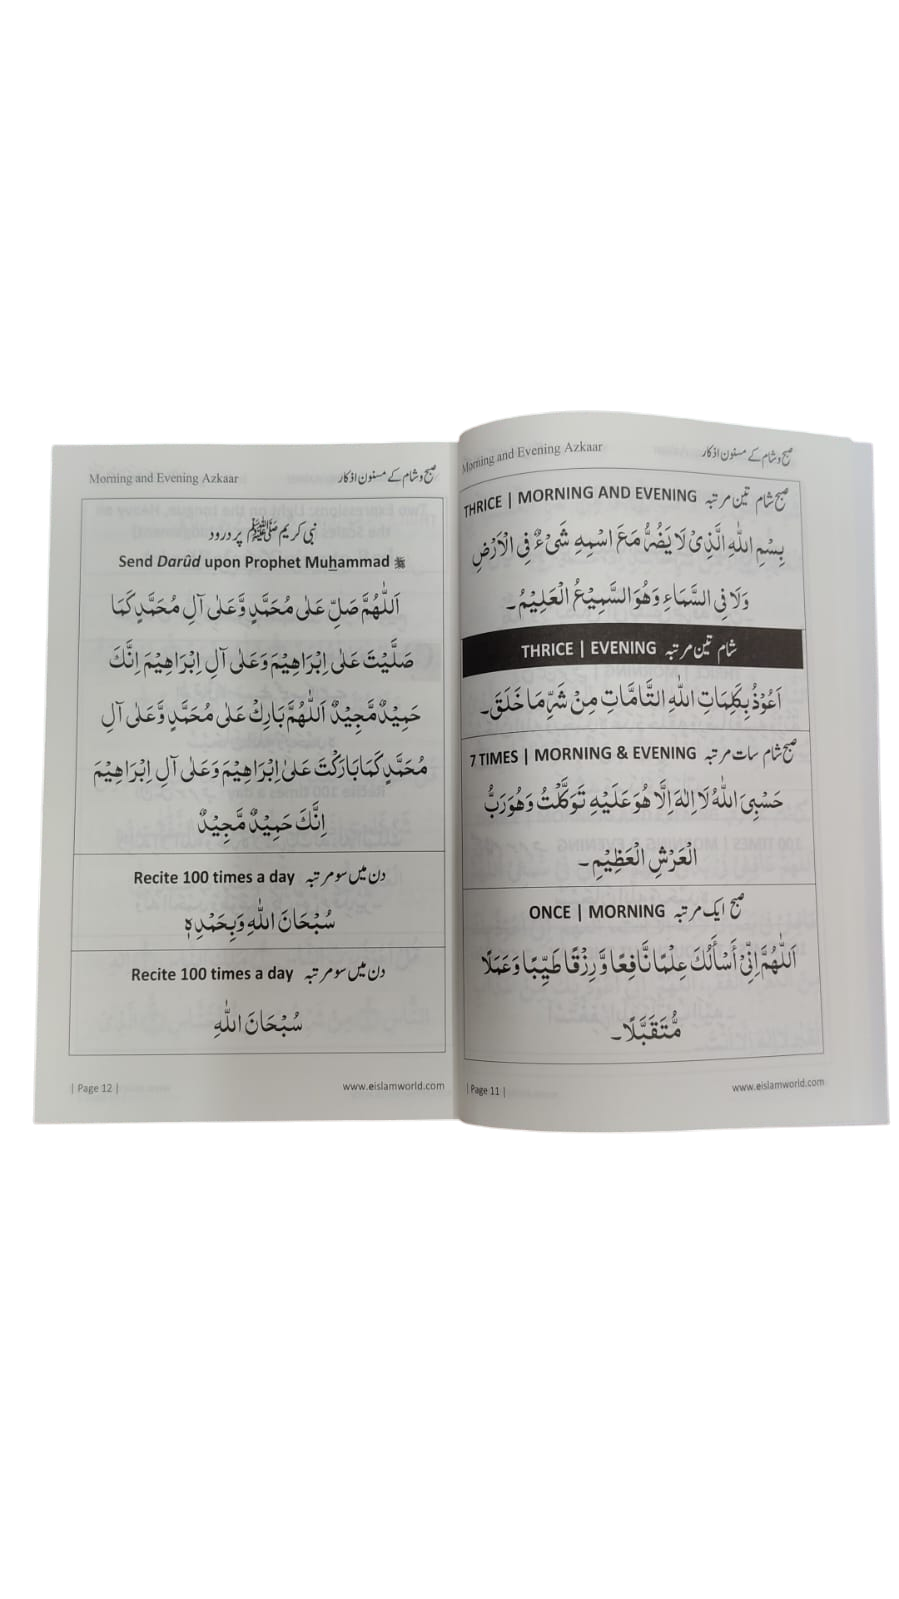 Morning and Evening Azkaar صبح و شام کے مسنون اذکار
THRICE | MORNING AND EVENING صبح شام تین مرتبہ
بِسْمِ اللّٰهِ الَّذِیْ لَا یَضُرُّ مَعَ اسْمِهٖ شَیْءٌ فِی الْاَرْضِ
وَلَا فِی السَّمَاءِ وَهُوَ السَّمِیْعُ الْعَلِیْمُ۔
THRICE | EVENING شام تین مرتبہ
اَعُوْذُ بِکَلِمَاتِ اللّٰهِ التَّامَّاتِ مِنْ شَرِّ مَا خَلَقَ۔
7 TIMES | MORNING & EVENING صبح شام سات مرتبہ
حَسْبِیَ اللّٰهُ لَا اِلٰهَ اِلَّا هُوَ عَلَیْهِ تَوَکَّلْتُ وَهُوَ رَبُّ
الْعَرْشِ الْعَظِیْمِ۔
ONCE | MORNING صبح ایک مرتبہ
اَللّٰهُمَّ اِنِّیْ أَسْأَلُكَ عِلْمًا نَّافِعًا وَّرِزْقًا طَیِّبًا وَعَمَلًا
مُّتَقَبَّلًا۔
| Page 11 | www.eislamworld.com
Morning and Evening Azkaar صبح و شام کے مسنون اذکار
نبی کریم ﷺ پر درود
Send Darûd upon Prophet Muhammad ﷺ
اَللّٰهُمَّ صَلِّ عَلٰی مُحَمَّدٍ وَّعَلٰی آلِ مُحَمَّدٍ کَمَا
صَلَّیْتَ عَلٰی اِبْرَاهِیْمَ وَعَلٰی آلِ اِبْرَاهِیْمَ اِنَّكَ
حَمِیْدٌ مَّجِیْدٌ اَللّٰهُمَّ بَارِكْ عَلٰی مُحَمَّدٍ وَّعَلٰی آلِ
مُحَمَّدٍ کَمَا بَارَکْتَ عَلٰی اِبْرَاهِیْمَ وَعَلٰی آلِ اِبْرَاهِیْمَ
اِنَّكَ حَمِیْدٌ مَّجِیْدٌ
Recite 100 times a day دن میں سو مرتبہ
سُبْحَانَ اللّٰهِ وَبِحَمْدِهٖ
Recite 100 times a day دن میں سو مرتبہ
سُبْحَانَ اللّٰهِ
| Page 12 | www.eislamworld.com